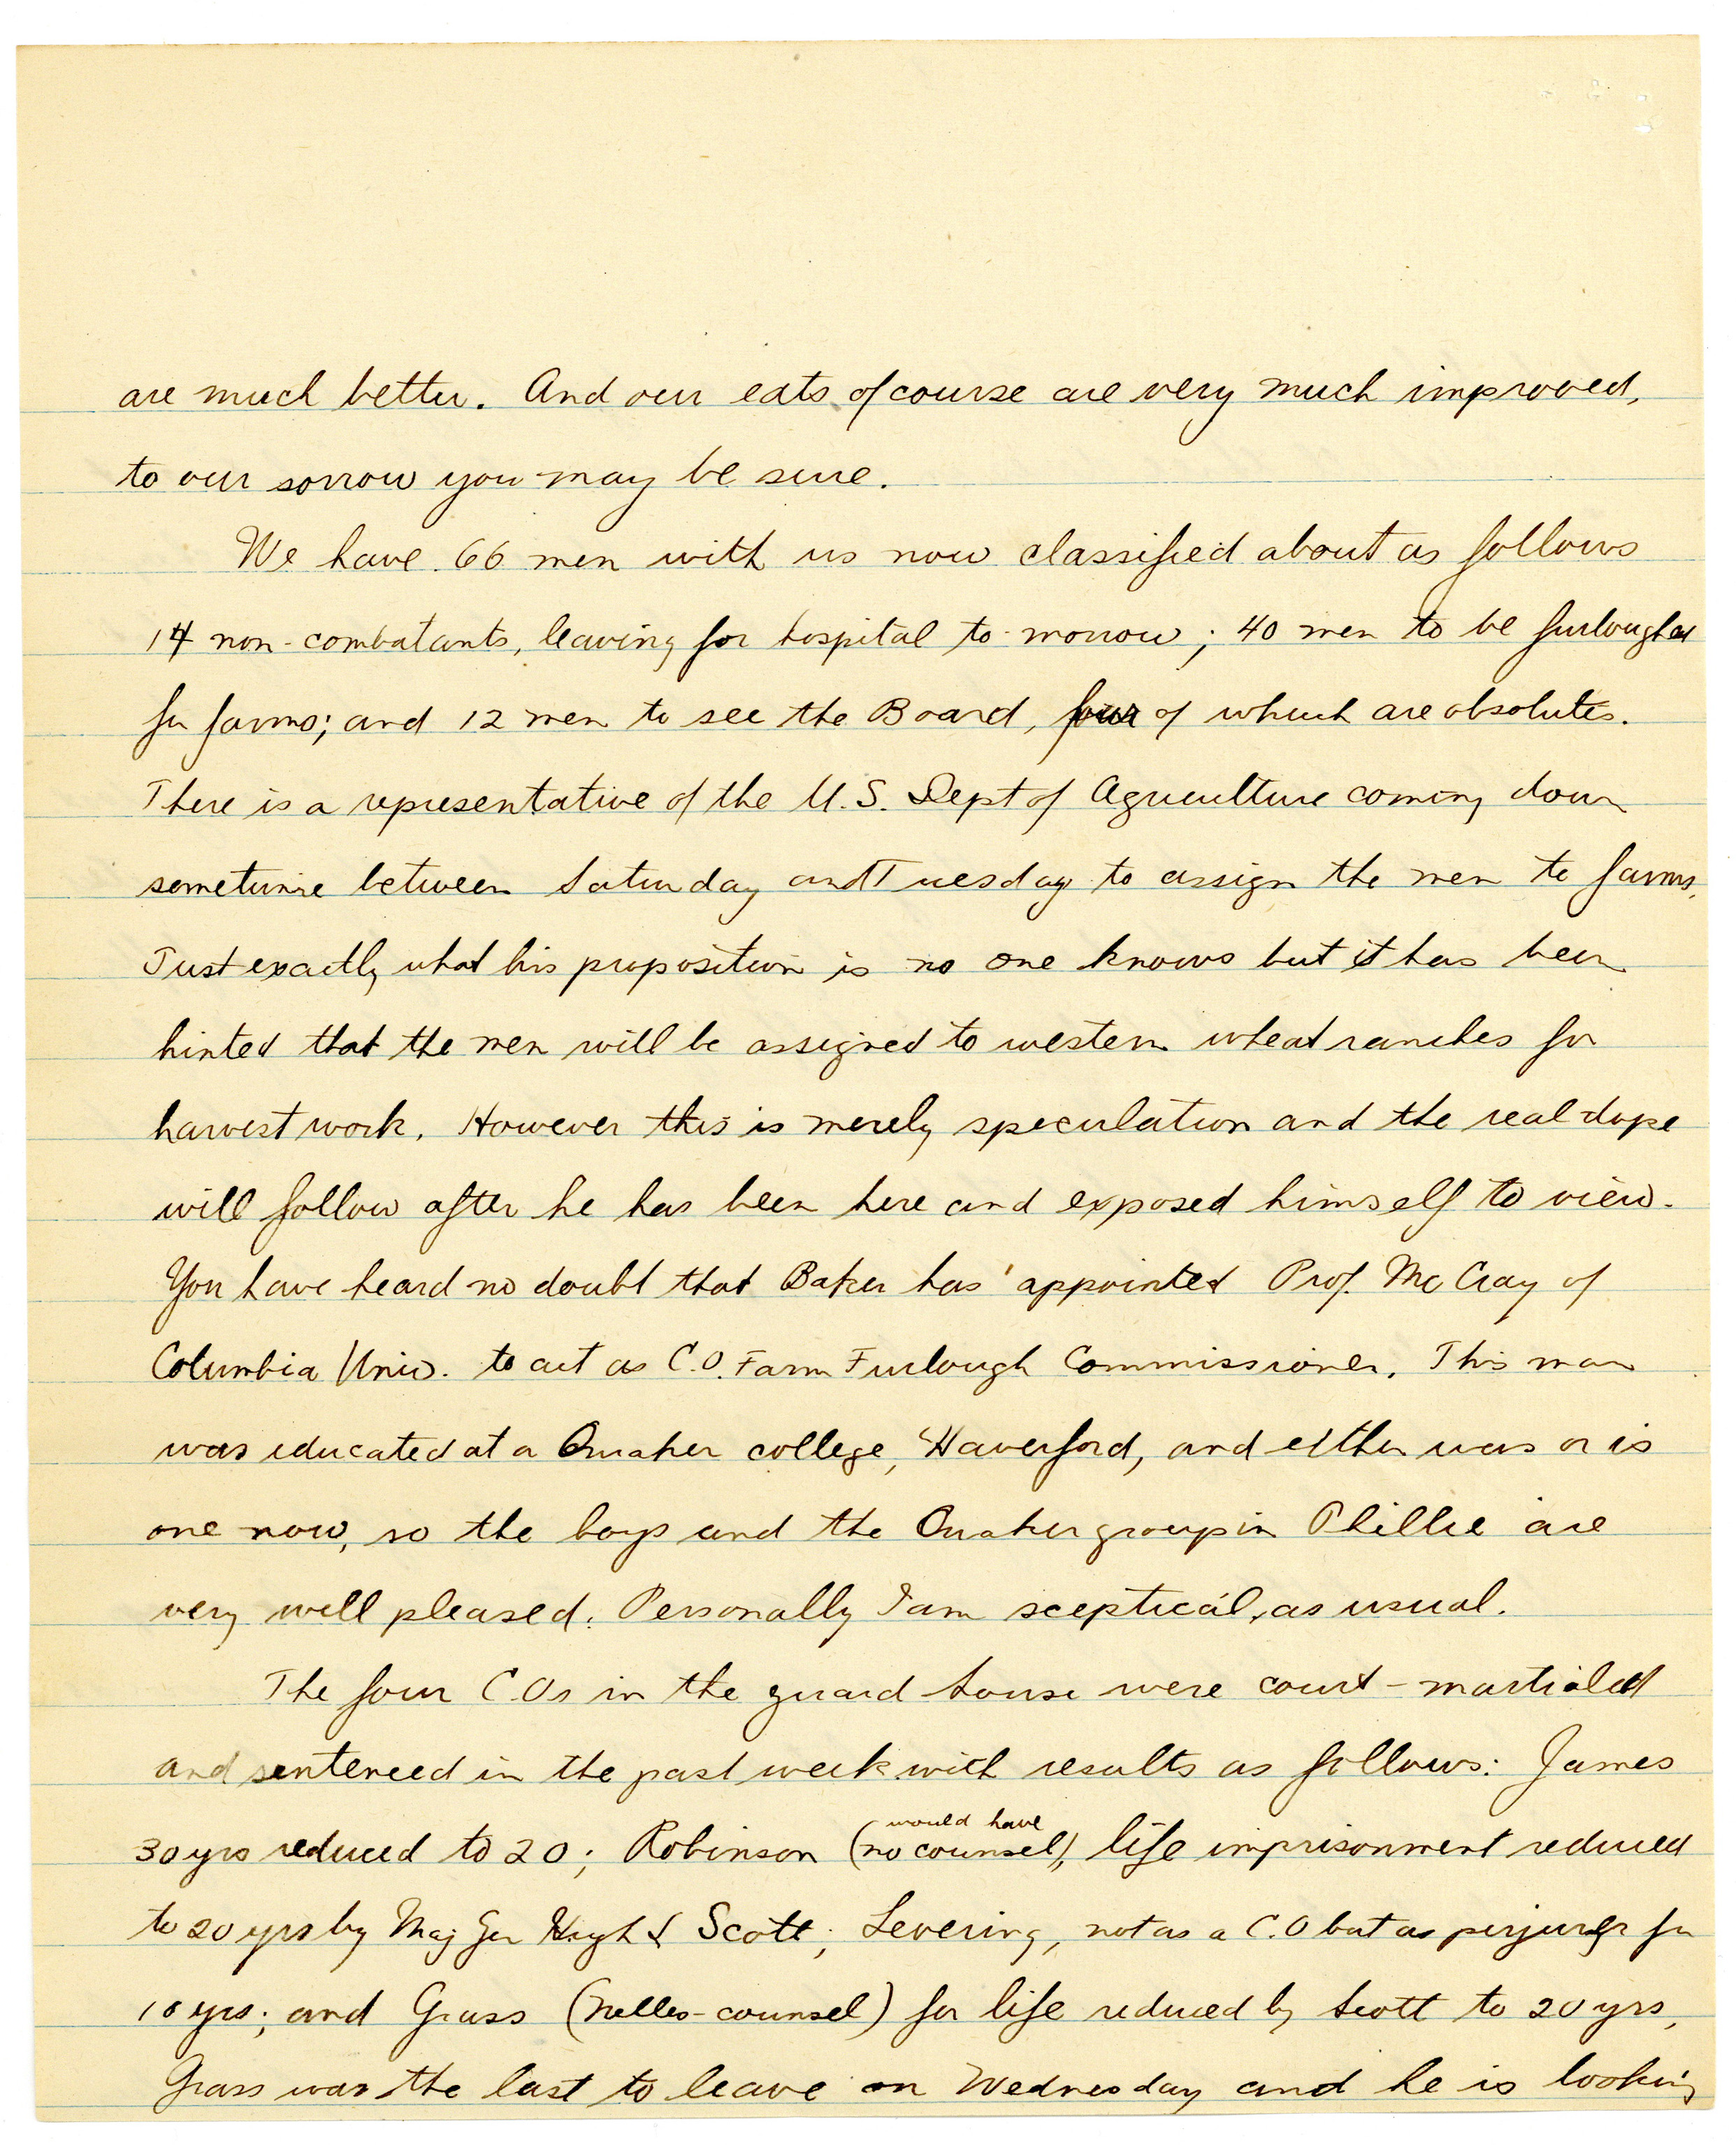 are much better. And our eats of course are very much improved,
to our sorrow you may be sure.
We have 66 men with us now classified about as follows
14 non-combatants, leaving for hospital to-morrow; 40 men to be furloughed
for farms; and 12 men to see the Board, four of which are absolutes.
There is a representative of the U.S. Dept of Agriculture coming down
sometime between Saturday and Tuesday to assign the men to farms.
Just exactly what his proposition is no one knows but it has been
hinted that the men will be assigned to western wheat ranches for
harvest work. However this is merely speculation and the real dope
will follow after he has been here and exposed himself to view.
You have heard no doubt that Baker has appointed Prof. McCray of
Columbia Univ. to act as C.O. Farm Furlough Commissioner. This man
was educated at a Quaker college, Haverford, and either was or is
one now, so the boys and the Quaker group in Phillie are
very well pleased. Personally I am sceptical, as usual.
The four C.Os in the guard house were court-martialed
and sentenced in the past week with results as follows: James
30 yrs reduced to 20; Robinson (would have no counsel), life imprisonment reduced
to 20 yrs by Maj Gen Hugh L Scott; Levering, not as a C.O but as perjurer for
10 yrs; and Grass (Nelles-counsel) for life reduced by Scott to 20 yrs,
Grass was the last to leave on Wednesday and he is looking